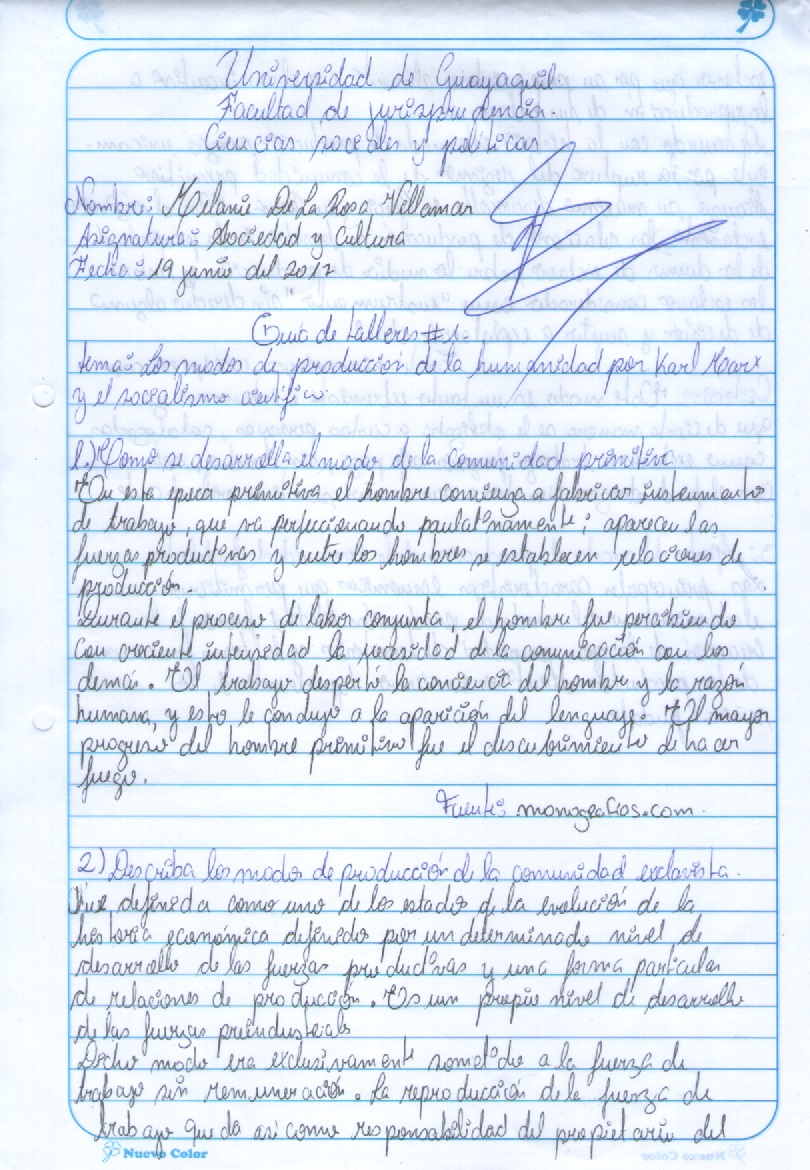 Universidad de Guayaquil
Facultad de jurisprudencia.
Ciencias sociales y políticas
Nombre: Melanie De La Rosa Villamar
Asignatura: Sociedad y Cultura
Fecha: 19 junio del 2012
Guía de talleres #1.
tema: Los modos de producción de la humanidad por Karl Marx
y el socialismo científico
1.) Como se desarrolla el modo de la comunidad primitiva
En esta epoca primitiva el hombre comienza a fabricar instrumento
de trabajo, que va perfeccionando paulatinamente; aparecen las
fuerzas productivas y entre los hombres se establecen relaciones de
producción.
Durante el proceso de labor conjunta, el hombre fue percibiendo
con creciente intensidad la necesidad de la comunicación con los
demas. El trabajo despertó la conciencia del hombre y la razón
humana, y esto le condujo a la aparición del lenguaje. El mayor
progreso del hombre primitivo fue el descubrimiento de hacer
fuego.
Fuente: monografias.com.
2) Describa los modos de producción de la comunidad esclavista.
Fue definida como uno de los estados de la evolución de la
historia económica definido por un determinado nivel de
desarrollo de las fuerzas productivas y una forma particular
de relaciones de producción. Es un propio nivel de desarrollo
de las fuerzas preindustriales
Dicho modo era exclusivamente sometido a la fuerza de
trabajo sin remuneración. La reproducción de la fuerza de
trabajo queda asi como responsabilidad del propietario del
Nuevo Color